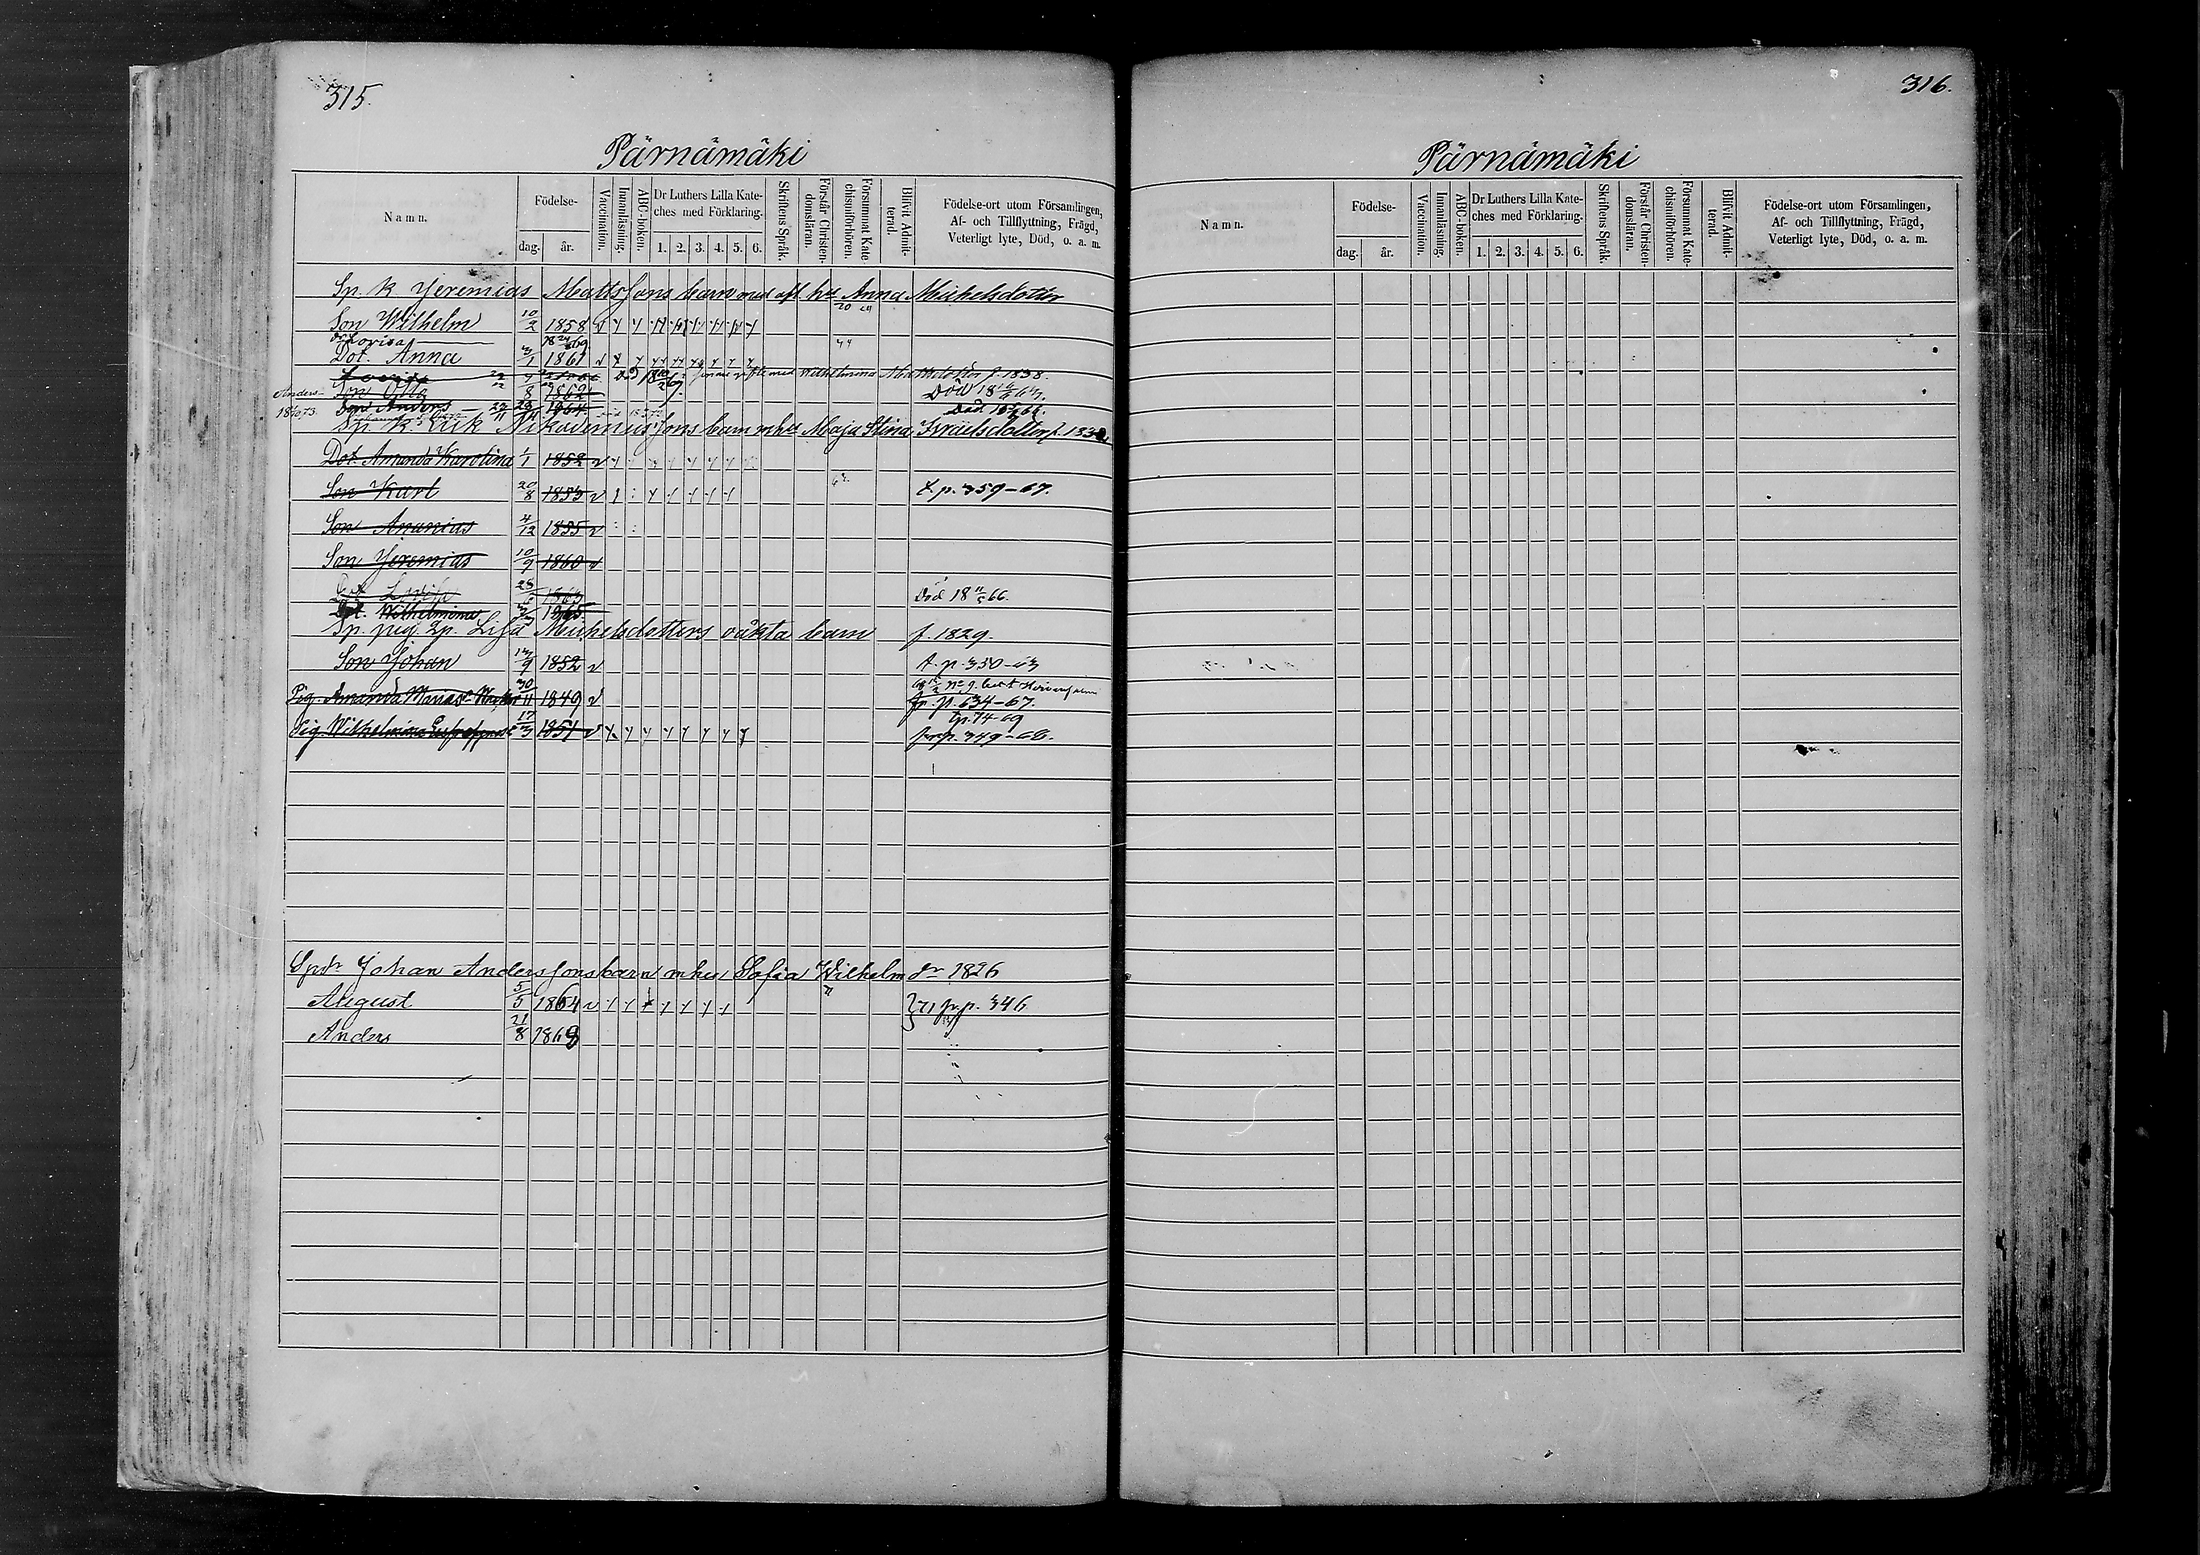 315.
Pärnämäki
Namn.
Födelse-
dag.
år.
Vaccination.
Innanläsning.
ABC-boken.
Dr Luthers Lilla Kate-
ches med Förklaring.
1. 2. 3. 4. 5. 6.
Skriftens Språk.
Förstår Christen-
domsläran.
Försummat Kate-
chismiförhören.
Blifvit Admit-
terad.
Födelse-ort utom Församlingen,
Af- och Tillflyttning, Frägd,
Veterligt lyte, Död, o. a. m.
Sp. k Jeremias Matts sons barn med afl. hu Anna Michelsdotter
Son Wilhelm 10/2 1858
Lovisa
Dot. Anna 3/1 1861
Wilhelmina f. 1838.
Son 8 1862 Död
Anders
Son Anders 1864 Död
Sp. k. Erik Nikodemus sons barn m hu Maja Stina Israelsdotter f.
Dot. Amanda Karolina 1/1 1852
Son Karl 20/8 1853 t. p. 359-67.
Son Ananias 4/12 1855
Son Jeremias 10/9 1860
Dot. Lovisa 28 1863 Död 18 11/5 66.
Dot. Wilhelmina 1865
Sp. pig. Lisa Michelsdotters oäkta barn f. 1829.
Son Johan 13/9 1852 t. p. 350-63
Pig. Amanda 30/11 1849 fr. p. 634-67.
tp. 74-69
Pig. Wilhelmina 17/3 1851 fr p. 349-68.
Johan Anders sons barn m hu Sofia Wilhelm dr 1826
August 5/5 1864 71 fr p. 346
Anders 21/8 1869
316.
Pärnämäki
Namn.
Födelse-
dag.
år.
Vaccination.
Innanläsning.
ABC-boken.
Dr Luthers Lilla Kate-
ches med Förklaring.
1. 2. 3. 4. 5. 6.
Skriftens Språk.
Förstår Christen-
domsläran.
Försummat Kate-
chismiförhören.
Blifvit Admit-
terad.
Födelse-ort utom Församlingen,
Af- och Tillflyttning, Frägd,
Veterligt lyte, Död, o. a. m.